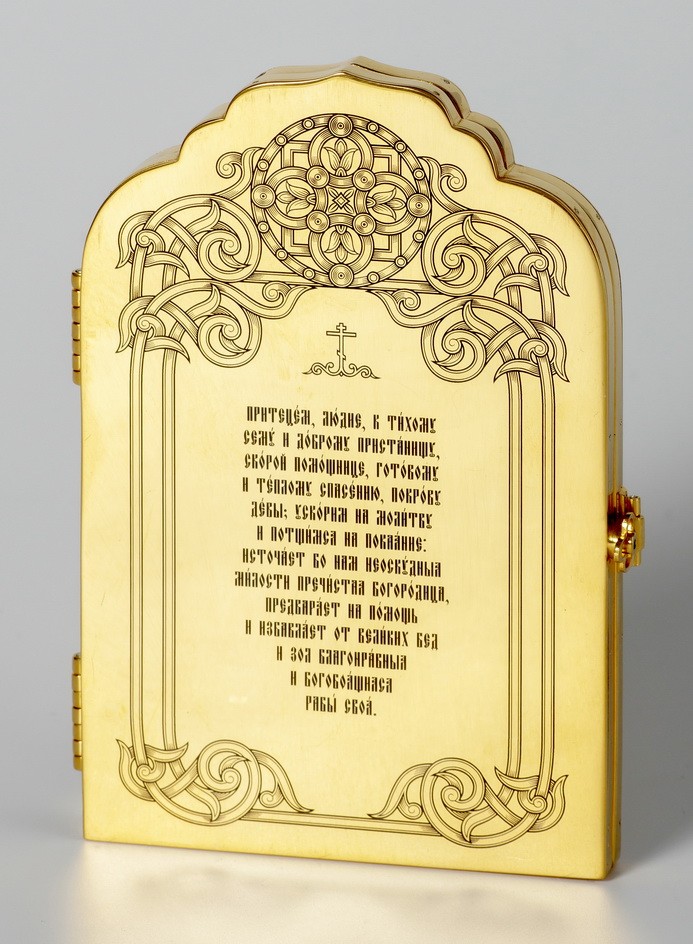 ПРИТЕЦЕ́М, ЛЮ́ДИЕ, К ТИ́ХОМУ
СЕМУ́ И ДО́БРОМУ ПРИСТА́НИЩУ,
СКО́РОЙ ПОМО́ЩНИЦЕ, ГОТО́ВОМУ
И ТЕ́ПЛОМУ СПАСЕ́НИЮ, ПОКРО́ВУ
ДЕ́ВЫ; УСКО́РИМ НА МОЛИ́ТВУ
И ПОТЩИ́МСЯ НА ПОКАЯ́НИЕ:
ИСТОЧА́ЕТ БО НАМ НЕОСКУ́ДНЫЯ
МИ́ЛОСТИ ПРЕЧИ́СТАЯ БОГОРО́ДИЦА,
ПРЕДВАРЯ́ЕТ НА ПО́МОЩЬ
И ИЗБАВЛЯ́ЕТ ОТ ВЕЛИ́КИХ БЕД
И ЗОЛ БЛАГОНРА́ВНЫЯ
И БОГОБОЯ́ЩИЯСЯ
РАБЫ́ СВОЯ́.